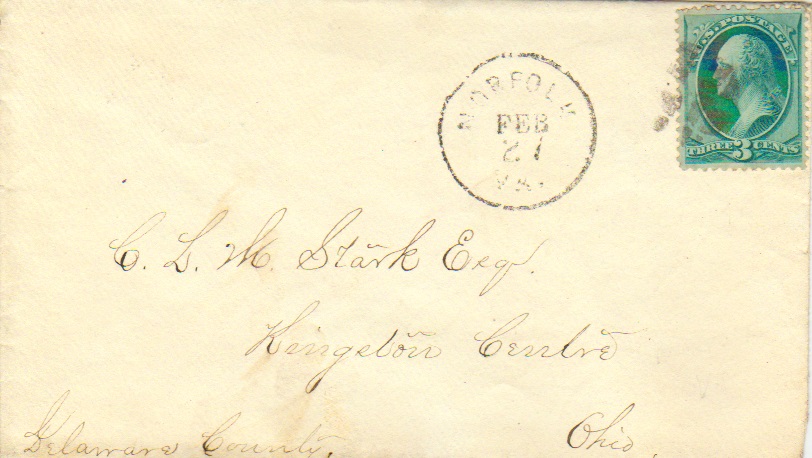 U.S. POSTAGE
THREE 3 CENTS
NORFOLK
FEB
27
VA.
C. L. M. Stark Esq.
Kingston Centre
Delaware County,
Ohio,